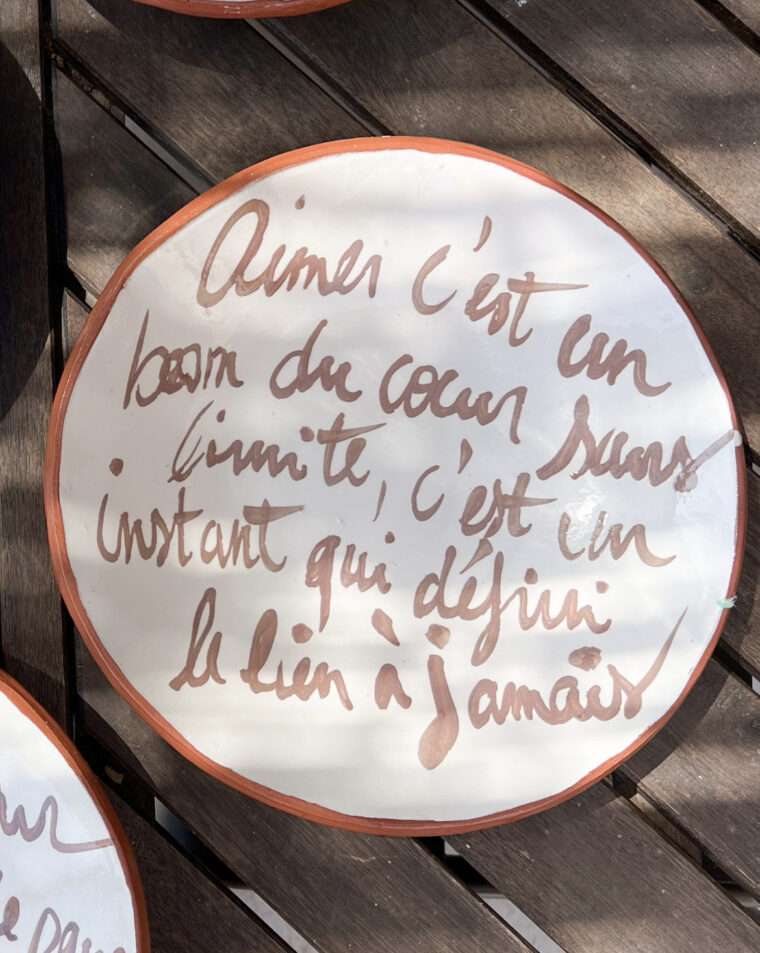 Aimer c'est un
besoin du cœur sans
limite, c'est un
instant qui défini
le lien à jamais